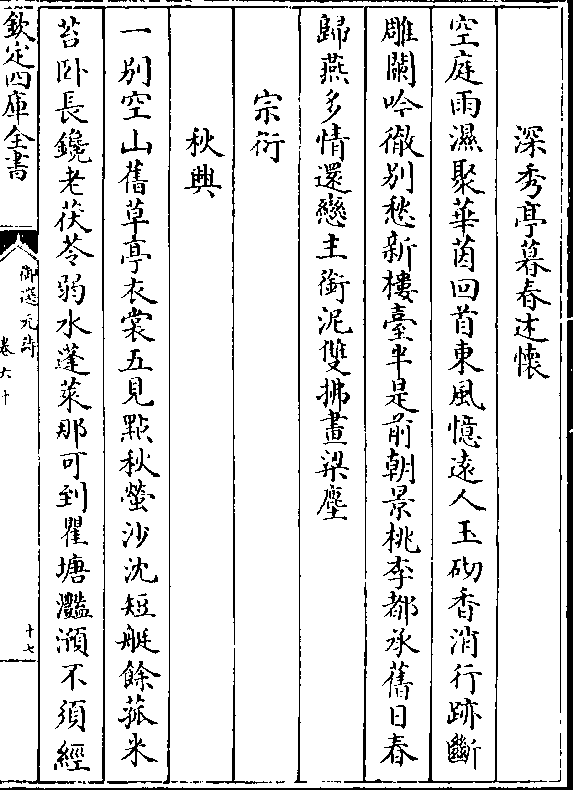 深秀亭暮春述懐
空庭雨濕聚華茵回首東風憶遠人玉砌香消行跡斷
雕闌吟徹别愁新樓臺半是前朝景桃李都承舊日春
歸燕多情還戀主銜泥雙拂畫梁塵
宗衍
秋興
一别空山舊草亭衣裳五見點秋螢沙沈短艇餘菰米
苔卧長鑱老茯苓弱水蓬萊那可到瞿塘灩澦不須經
欽定四庫全書
御選元詩
卷六十
十七